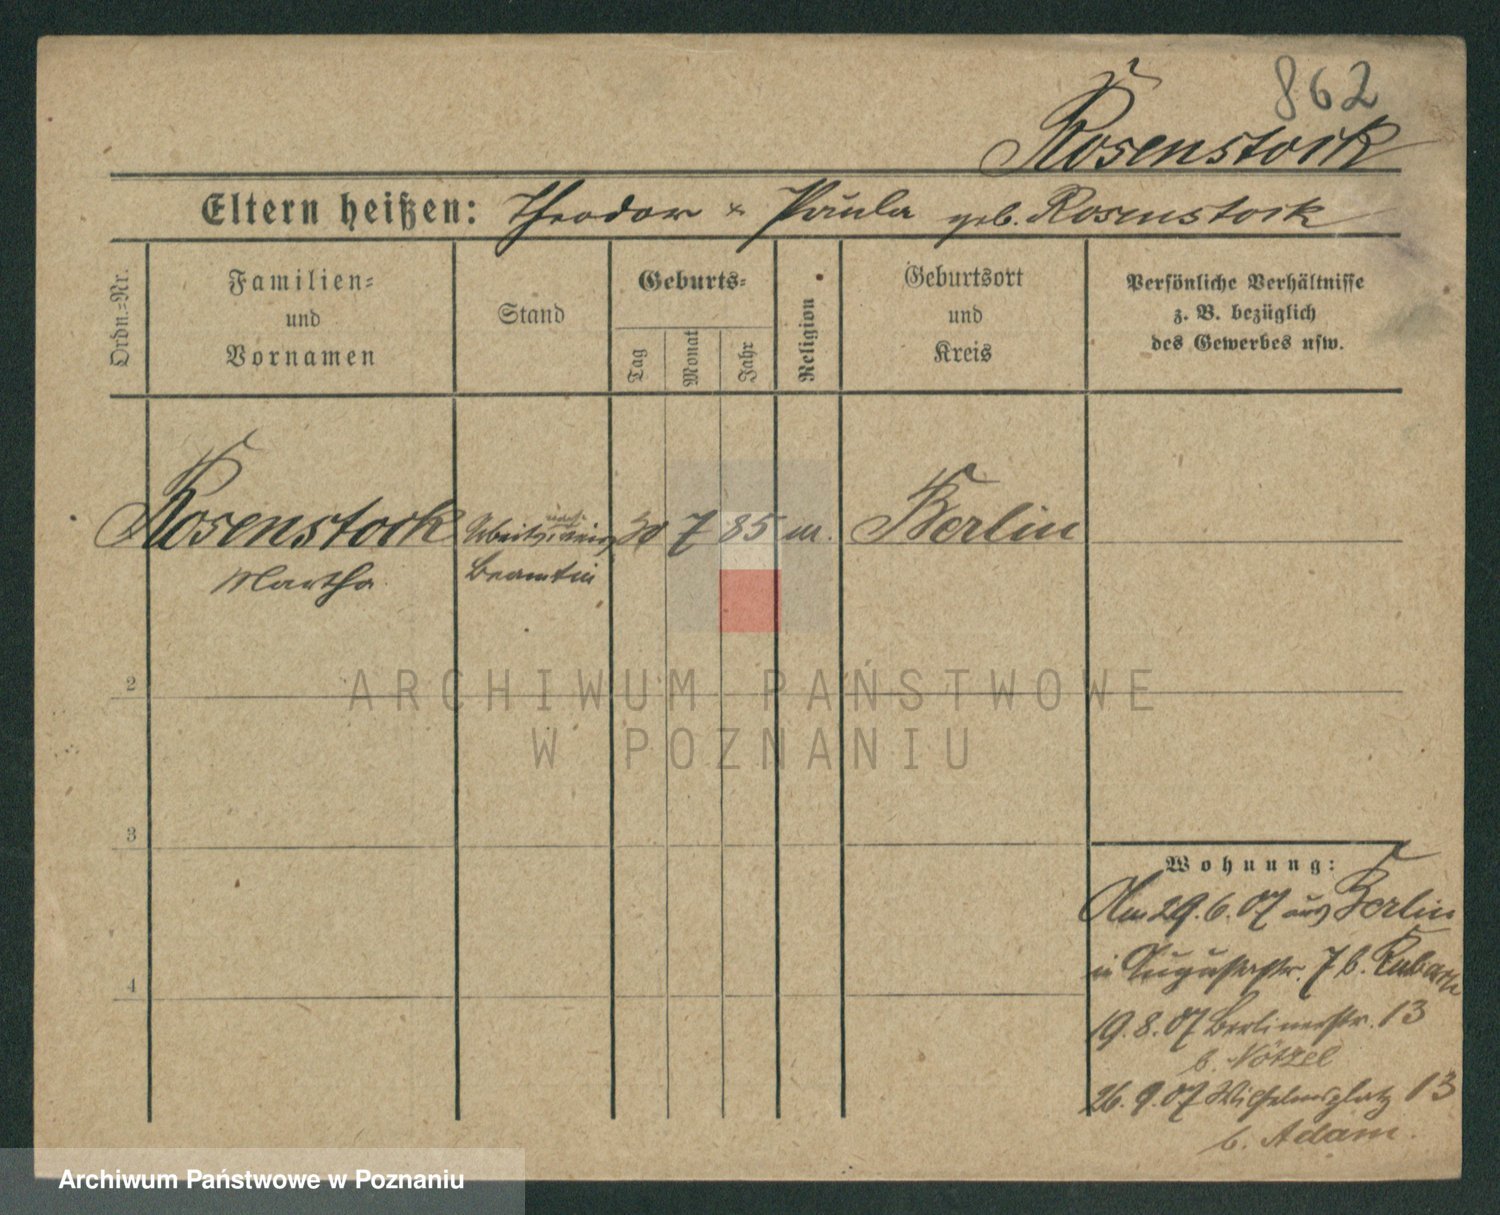 862
Rosenstock
Eltern heißen: Theodor & Paula geb. Rosenstock
Ordn.=Nr.
Familien=
und
Vornamen
Stand
Geburts=
Tag
Monat
Jahr
Religion
Geburtsort
und
Kreis
Persönliche Verhältnisse
z. B. bezüglich
des Gewerbes usw.
Rosenstock
Martha
Beamtin
30 7 85 m. Berlin
2
ARCHIWUM PAŃSTWOWE
W POZNANIU
3
4
Wohnung:
Am 29.6.07 aus Berlin
in Augustastr. 7 b.
19.8.07 Berlinerstr. 13
b. Nötzel
26.9.07 Wilhelmsplatz 13
b. Adam.
Archiwum Państwowe w Poznaniu